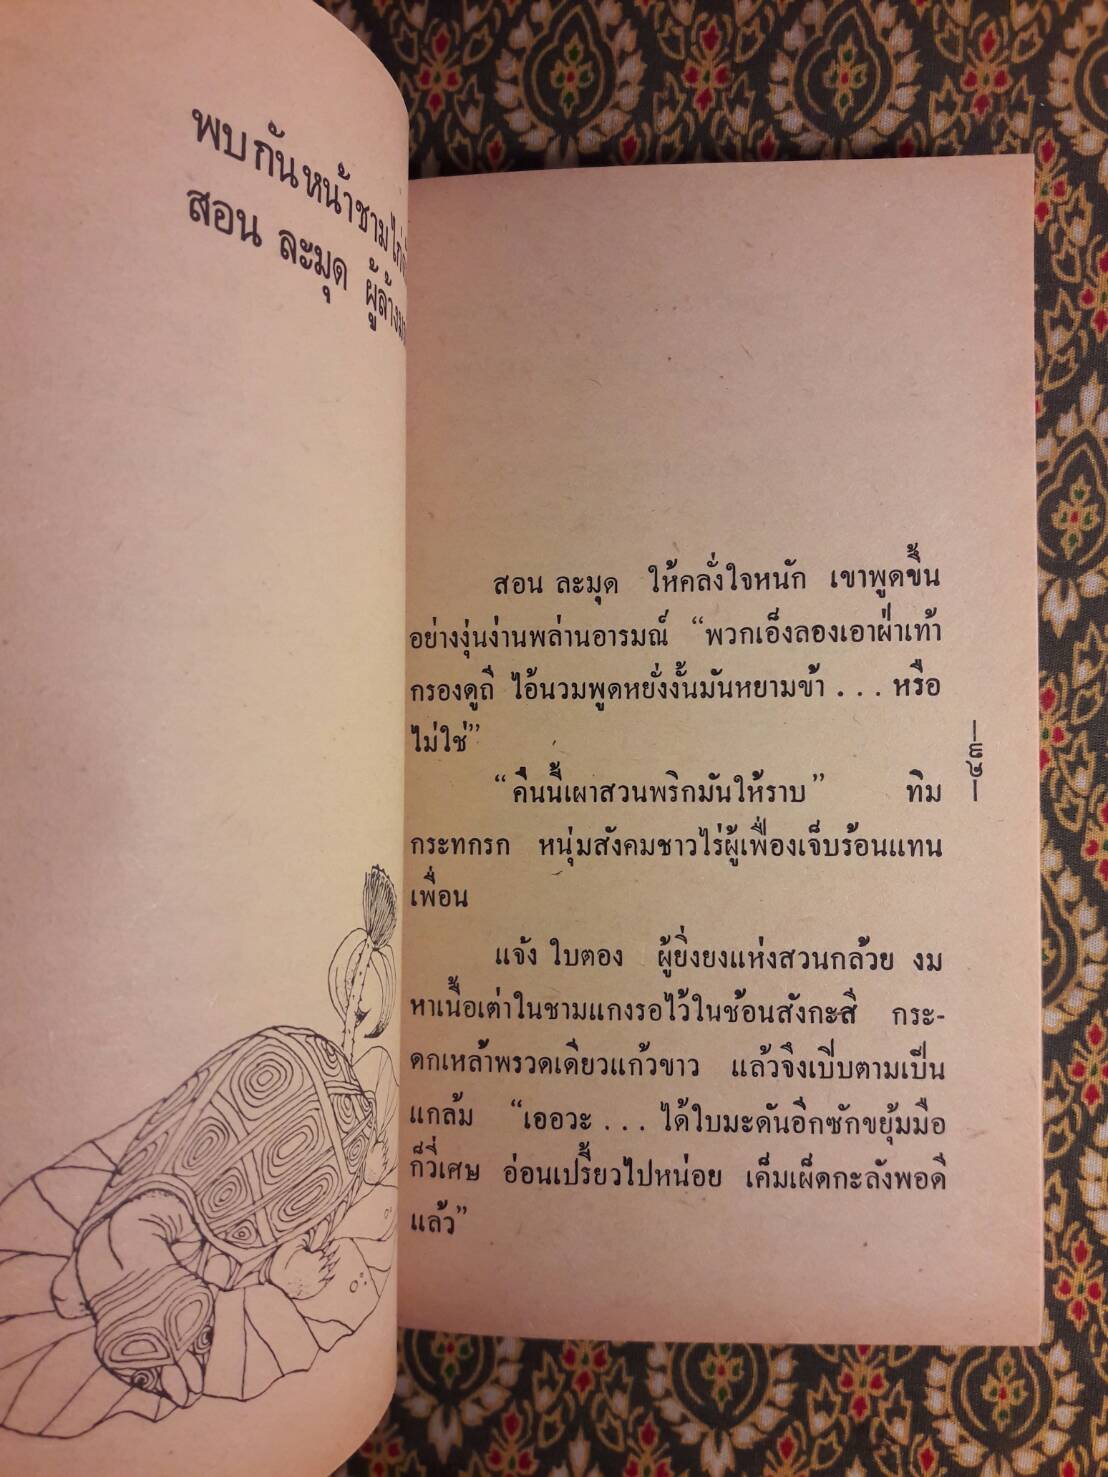 พบกันหน้าชามไก่
สอน ละมุด ผู้ล้าง
สอน ละมุด ให้คลั่งใจหนัก เขาพูดขึ้น
อย่างงุ่นง่านพล่านอารมณ์ “พวกเอ็งลองเอาฝ่าเท้า
กรองดูถี ไอ้นวมพูดหยั่งงั้นมันหยามข้า . . . หรือ
ไม่ใช่”
“คืนนี้เผาสวนพริกมันให้ราบ” ทิม
กระทกรก หนุ่มสังคมชาวไร่ผู้เฟื่องเจ็บร้อนแทน
เพื่อน
แจ้ง ใบตอง ผู้ยิ่งยงแห่งสวนกล้วย งม
หาเนื้อเต่าในชามแกงรอไว้ในช้อนสังกะสี กระ-
ดกเหล้าพรวดเดียวแก้วขาว แล้วจึงเปิบตามเป็น
แกล้ม “เออวะ . . . ได้ใบมะดันอีกซักขยุ้มมือ
ก็วี่เศษ อ่อนเปรี้ยวไปหน่อย เค็มเผ็ดกะลังพอดี
แล้ว”
๙๔